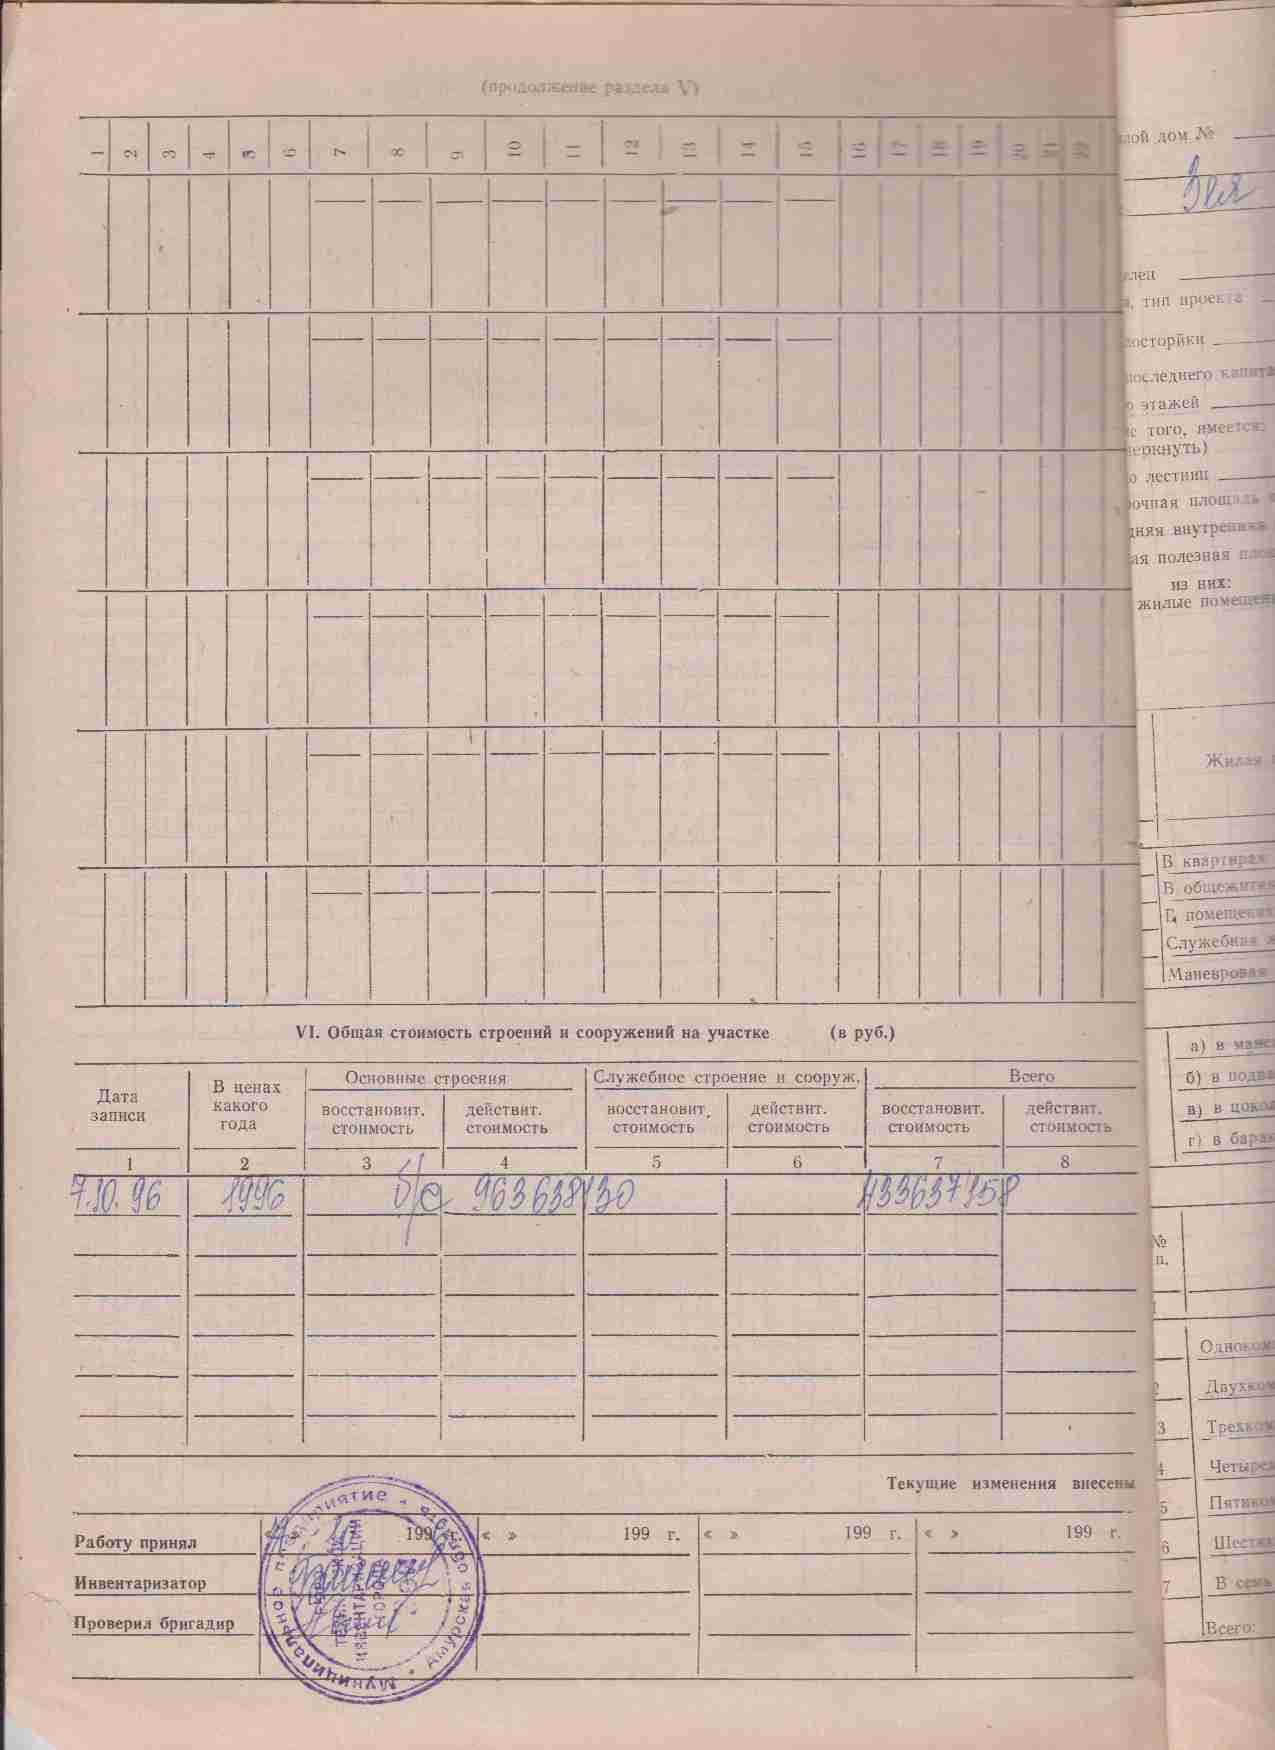 (продолжение раздела V)
1 2 3 4 5 6 7 8 9 10 11 12 13 14 15 16 17 18 19 20 21 22
VI. Общая стоимость строений и сооружений на участке (в руб.)
Дата записи
В ценах какого года
Основные строения
Служебное строение и сооруж.
Всего
восстановит. стоимость
действит. стоимость
восстановит. стоимость
действит. стоимость
восстановит. стоимость
действит. стоимость
1 2 3 4 5 6 7 8
7.10.96 1996 б/с 963638130 433637158
Текущие изменения внесены
Работу принял 199 г. « » 199 г. « » 199 г. « » 199 г.
Инвентаризатор
Проверил бригадир
Муниципальное предприятие • Амурская область
БЮРО
ТЕХНИЧЕСКОЙ
ИНВЕНТАРИЗАЦИИ
ГОРОДА
лой дом №
Зея
елец
, тип проекта
постройки
последнего капита
о этажей
ме того, имеется:
черкнуть)
о лестниц
рочная площадь
дняя внутренняя
ая полезная площ
из них:
жилые помещени
Жилая п
В квартирах
В общежития
Г, помещениях
Служебная ж
Маневровая
а) в манса
б) в подва
в) в цокол
г) в барак
№
п.
1
Одноком
2 Двухком
3 Трехком
4 Четырех
5 Пятиком
6 Шестик
7 В семь
Всего: